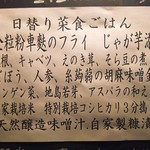 日替り菜食ごはん
全粒粉車麩のフライ じゃが芋
根、キャベツ、えのき茸、そら豆の煮
ごぼう、人参、糸蒟蒻の胡麻味噌
ンゲン菜、地鳥若芽、アスパラの和え
家栽培米 特別栽培コシヒカリ3分搗
天然醸造味噌汁、自家製糠漬